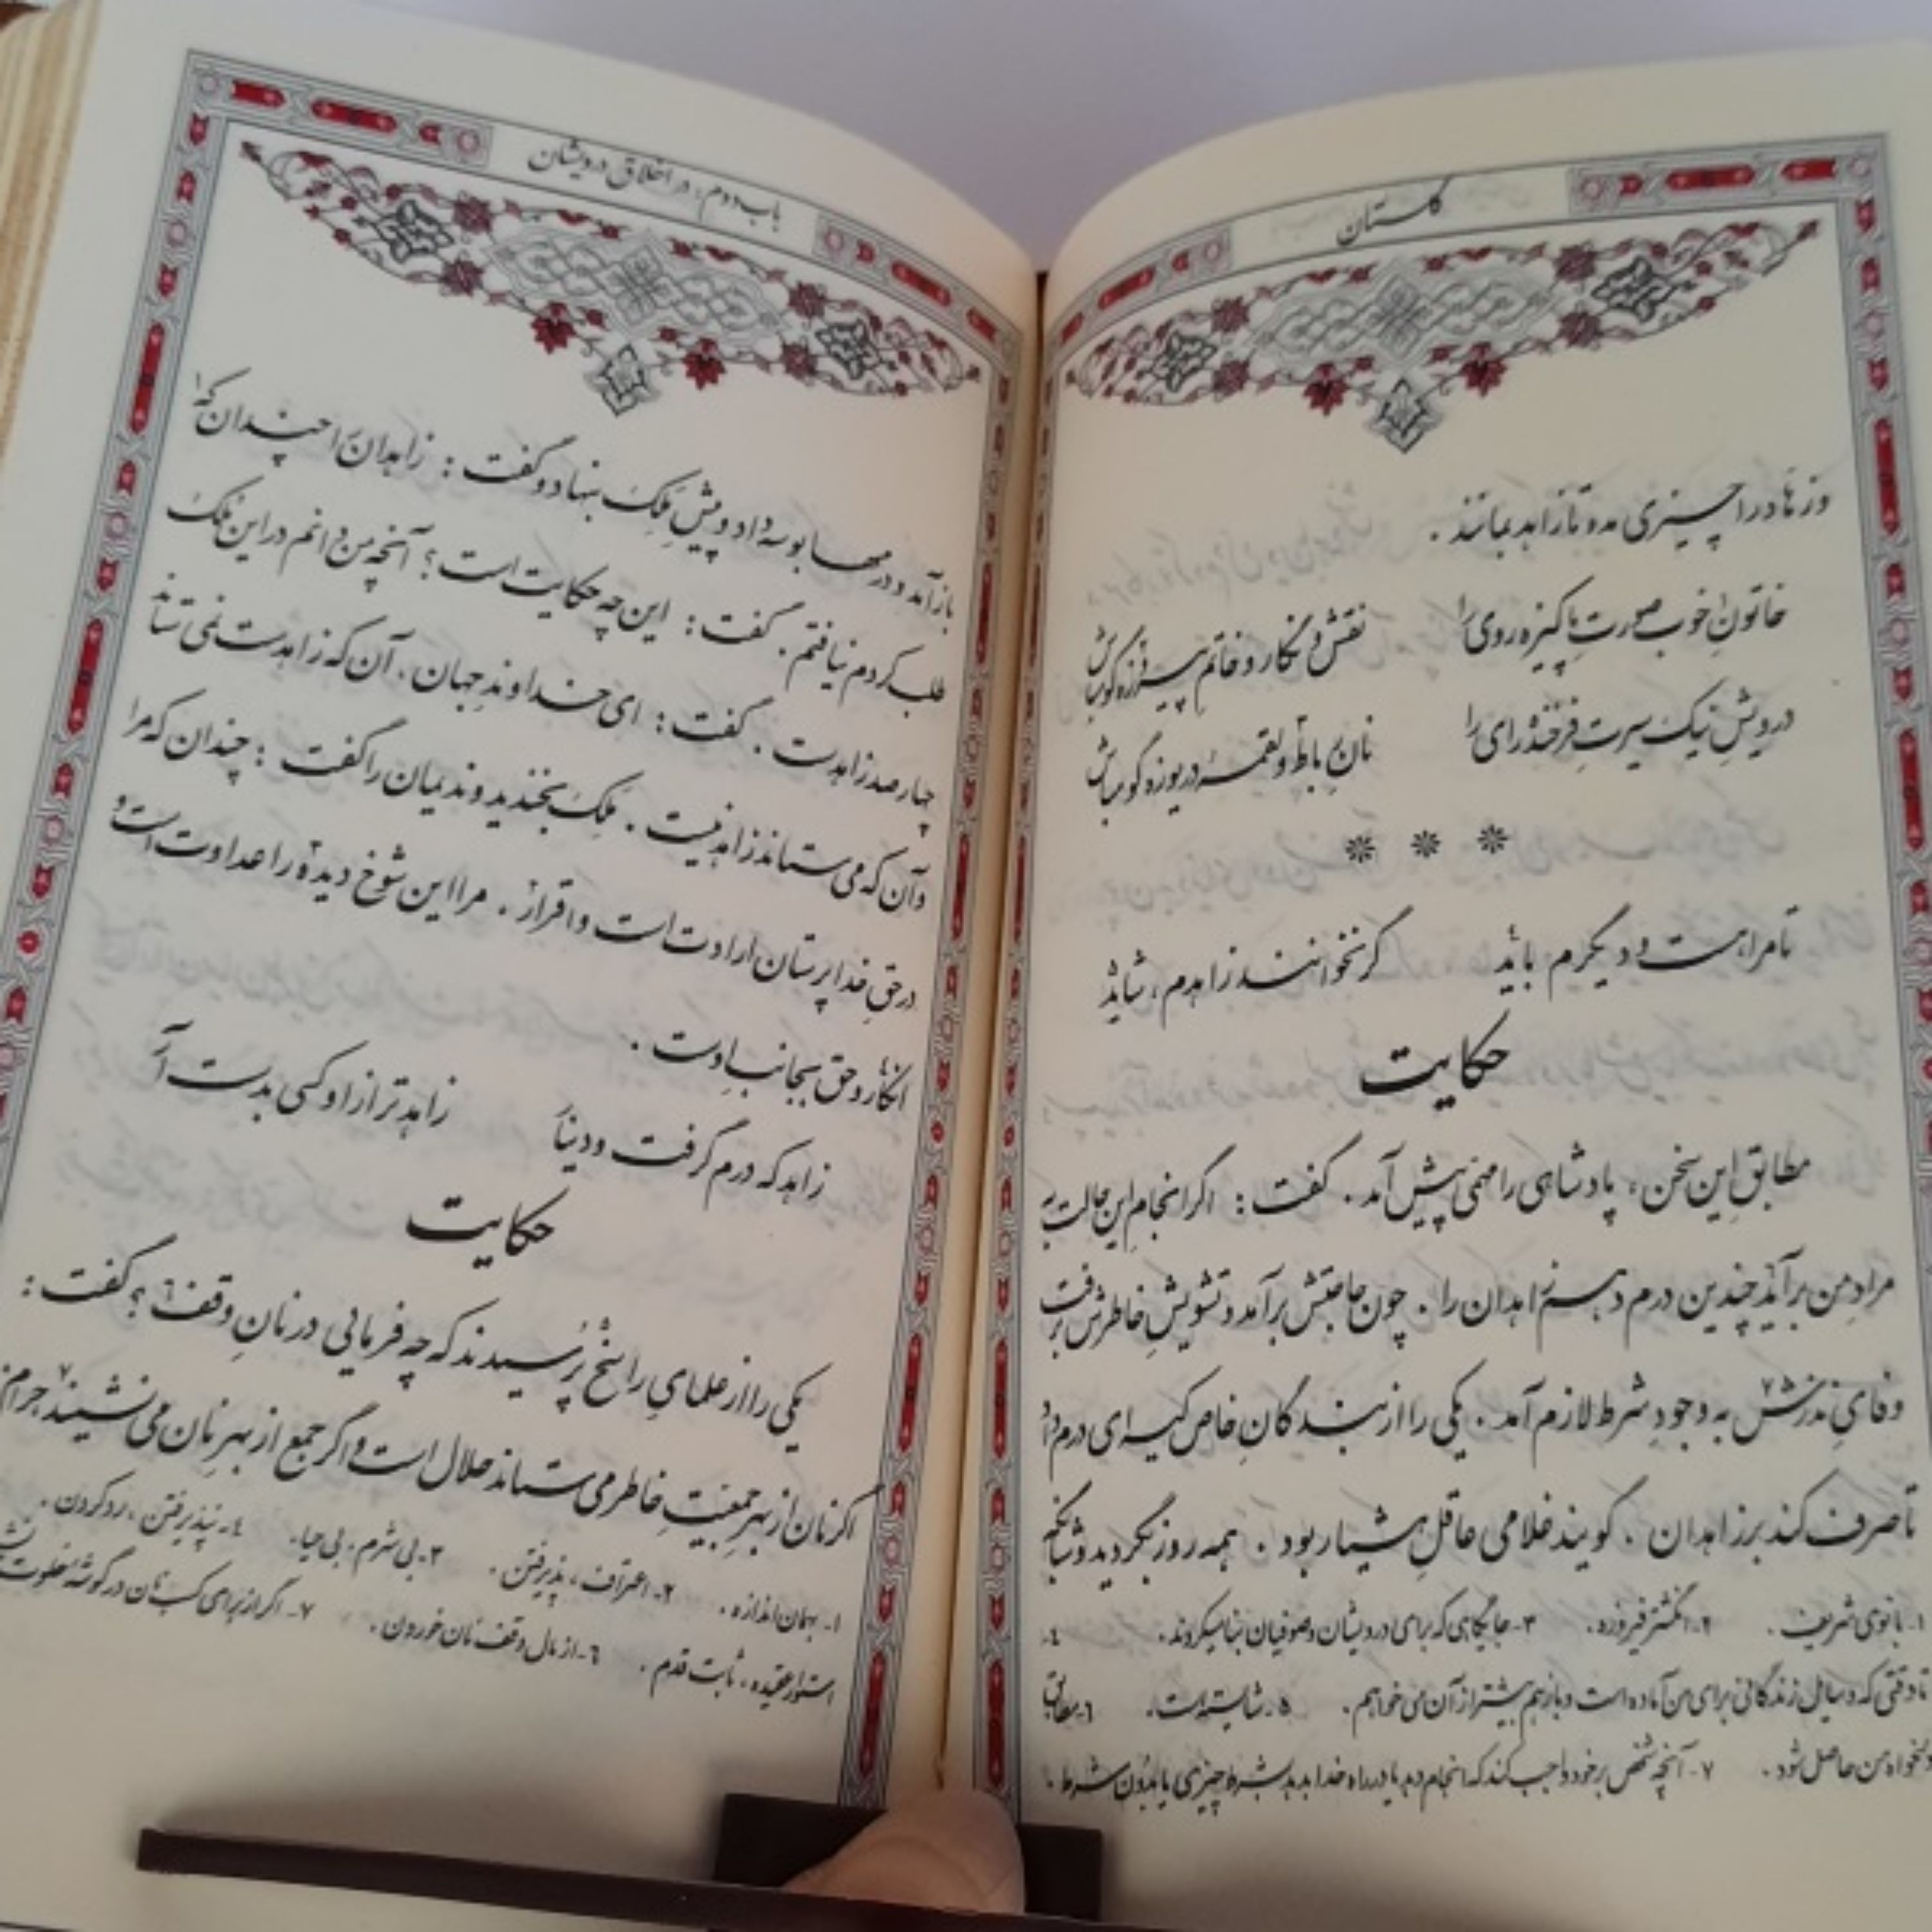 گلستان
وز نهادر را چیزی مده تا زاهد بمانند.
خاتونِ خوب صورتِ پاکیزه روی را نقش و نگار و خاتمِ پیروزه گو مباش
درویشِ نیک سیرتِ فرخنده رای را نانِ رباط و لقمهٔ دریوزه گو مباش
* * *
تا مرا هست و دیگرم باید گر نخوانند زاهدم، شاید
حکایت
مطابقِ این سخن، پادشاهی را مهمی پیش آمد. گفت: اگر انجامِ این حالت به
مرادِ من برآید چندین درم دهم زاهدان را. چون حاجتش برآمد و تشویشِ خاطرش برفت
وفایِ نذرش به وجودِ شرط لازم آمد. یکی را از بندگانِ خاص کیسه‌ای درم داد
تا صرف کند بر زاهدان. گویند غلامی عاقلِ هشیار بود. همه روز بگردید و شبانگه
۱- بانوی شریف. ۲- انگشتر فیروزه. ۳- جایگاهی که برای درویشان و صوفیان بنا میکردند. ٤-
تا وقتی که وسایل زندگانی برای من آماده است و باز هم بیشتر از آن می خواهم. ۵- شایسته است. ٦- مطابق
دلخواه من حاصل شود. ۷- آنچه شخص بر خود واجب کند که انجام دهد یا در راه خدا بدهد بشرط چیزی یا بدون شرط.
باب دوم، در اخلاق درویشان
باز آمد و درمها بوسه داد و پیشِ مَلِک بنهاد و گفت: زاهدان را چندان که
طلب کردم نیافتم. گفت: این چه حکایت است؟ آنچه من دانم در این مُلک
چهارصد زاهدست. گفت: ای خداوندِ جهان، آن که زاهدست نمی ستاند
و آن که می ستاند زاهد نیست. مَلِک بخندید و ندیمان را گفت: چندان که مرا
در حقِ خدا پرستان ارادت است و اقرار، مر این شوخ دیده را عداوت است و
انکار و حق بجانبِ اوست.
زاهد که درم گرفت و دینار زاهدتر از او کسی بدست آر
حکایت
یکی را از علمایِ راسخ پرسیدند که چه فرمایی در نانِ وقف؟ گفت:
اگر نان از بهرِ جمعیتِ خاطر می ستاند حلال است و اگر جمع از بهرِ نان می نشیند حرام.
۱- بهمان اندازه. ۲- اعتراف، پذیرفتن. ۳- بی شرم، بی حیا. ٤- نپذیرفتن، رد کردن.
استوار عقیده، ثابت قدم. ٦- از مال وقف نان خوردن. ۷- اگر از برای کسب نان در گوشهٔ خلوت